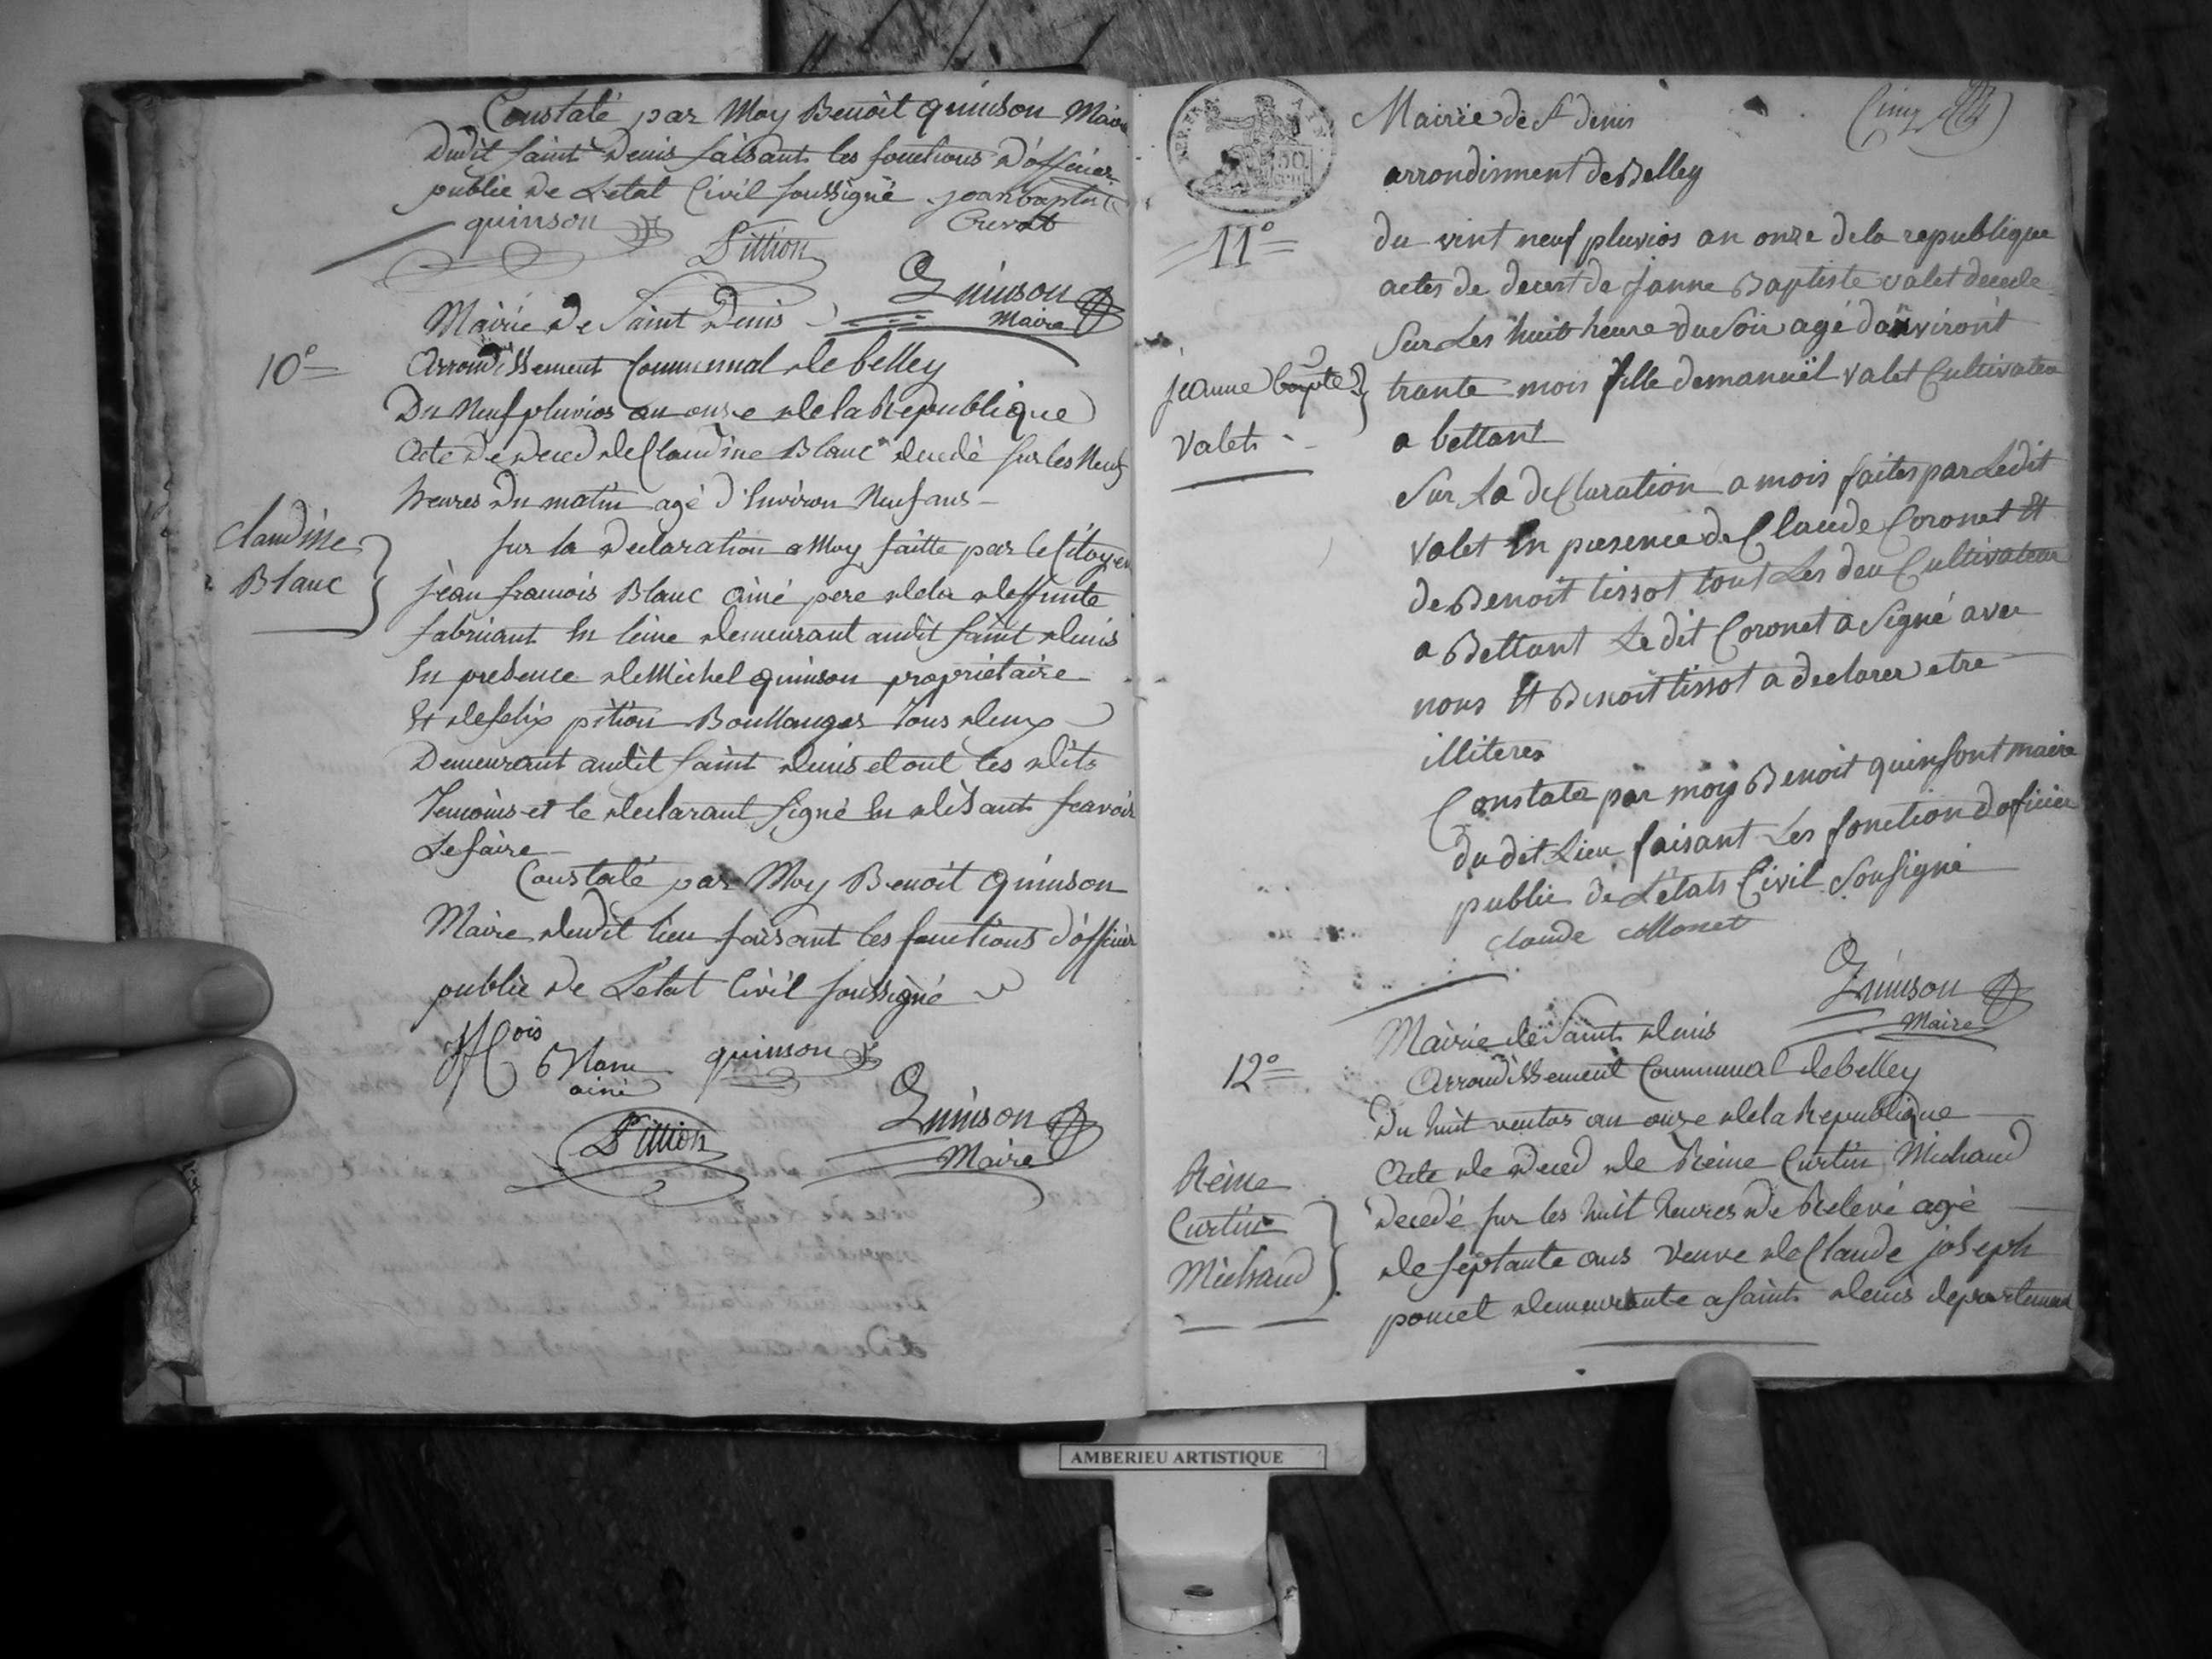 Constaté par Moy Benoit quinson Maire
Dudit saint Denis faisant les fonctions d'officier
public de L'état Civil soussigné. jean baptiste
quinson
Crevat
Pittion
Quinson
Maire
Mairie de Saint Denis
10°
Arrondissement Communal de belley
Du Neuf pluvios an onze de la Republique
Acte de deced de Claudine Blanc decedé sur les Neuf
heures du matin agé d'Environ Neuf ans
Claudine
Blanc
sur la Declaration a Moy faitte par le Citoyen
jean francois Blanc ainé pere de la deffunte
fabricant En leine demeurant audit saint denis
En presence de Michel quinson propriétaire
Et de felix pition Boullanger tous deux
Demeurant audit saint denis et ont les dits
temoins et le declarant signé En disant scavoir
Le faire
Constaté par Moy Benoit quinson
Maire dudit lieu faisant les fonctions d'officier
public de L'état Civil soussigné
quinson
ainé
Pittion
Quinson
Maire
Mairie de St denis
arrondisment de Belley
11°
du vint neuf pluvios an onze de la republique
actes de decert de Janne Baptiste valet decede
Sur Les huit heure du Soir agé danviront
jeanne bapte
Valet
trante mois fille demanuël valet Cultivateur
a bettant
Sur La declaration a mois faites par Ledit
valet En presence de Claude Coronet Et
de Benoit tissot tout Les deu Cultivateur
a Bettant Le dit Coronet a Signé avec
nous Et Benoit tissot a declarer etre
illiteres
Constater par moy Benoit quinsont maire
du dit Lieu faisant Les fonction doficier
public de L'états Civil Sousigné
Claude
Quinson
Maire
Mairie de Saint denis
12°
Arrondissement Communal de belley
Du huit ventos an onze de la Republique
Acte de deced de Reine Curtin Michaud
Reine
Curtin
Michaud
decedé sur les huit heures de Relevé agé
de septante ans veuve de Claude joseph
poncet demeurante a saint denis departement
AMBERIEU ARTISTIQUE